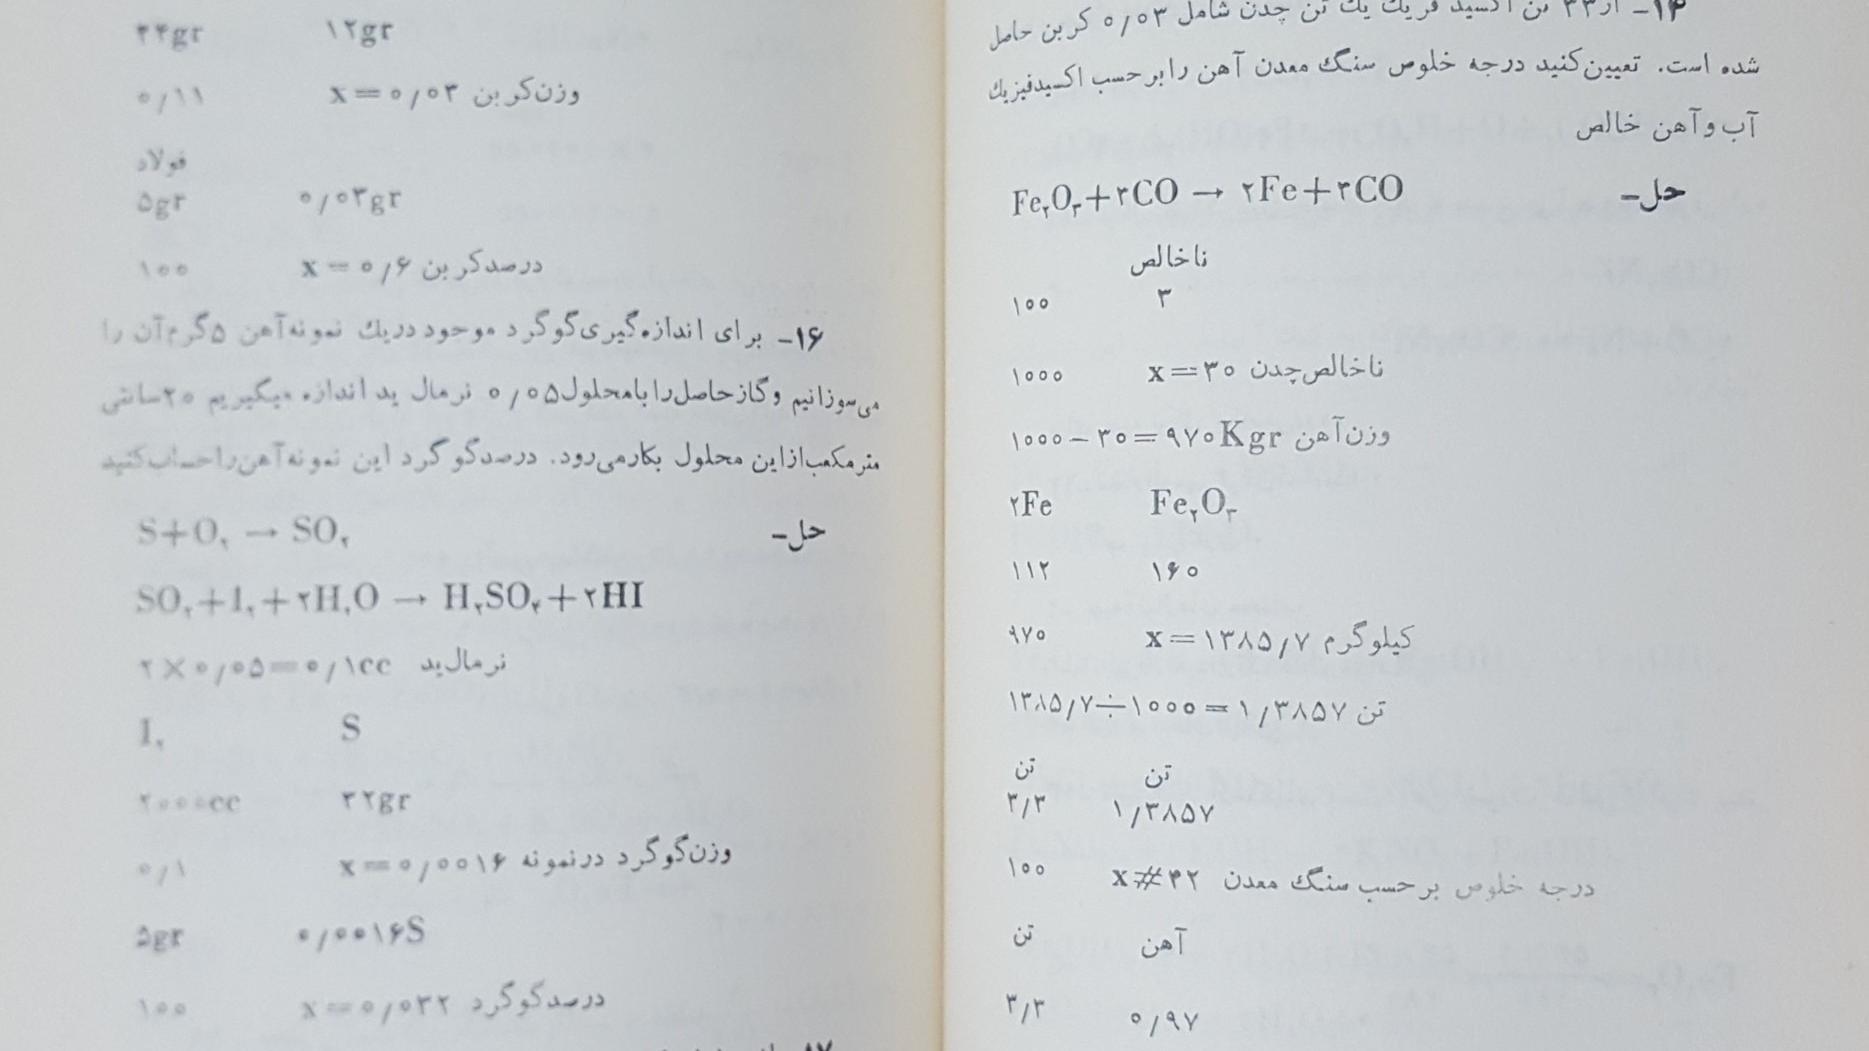 ۱۴- از ۳۳ تن اکسید فریك یك تن چدن شامل ۰/۰۳ کربن حاصل
شده است. تعیین‌کنید درجه خلوص سنگ معدن آهن را بر حسب اکسیدفیزیك
آب و آهن خالص
حل- Fe۲O۳+۳CO → ۲Fe+۳CO
ناخالص
۱۰۰ ۳
۱۰۰۰ x=۳۰ ناخالص‌چدن
۱۰۰۰-۳۰=۹۷۰Kgr وزن‌آهن
۲Fe Fe۲O۳
۱۱۲ ۱۶۰
۹۷۰ x=۱۳۸۵/۷ کیلوگرم
۱۳۸۵/۷÷۱۰۰۰=۱/۳۸۵۷ تن
تن تن
۳/۳ ۱/۳۸۵۷
۱۰۰ x#۴۲ درجه خلوص بر حسب سنگ معدن
تن آهن
۳/۳ ۰/۹۷
۴۴gr ۱۲gr
۰/۱۱ x=۰/۰۳ وزن‌کربن
فولاد
۵gr ۰/۰۳gr
۱۰۰ x=۰/۶ درصدکربن
۱۶- برای اندازه‌گیری‌گوگرد موجود دریك نمونه‌آهن ۵گرم‌آن را
می‌سوزانیم وگازحاصل‌را بامحلول۰/۰۵ نرمال ید اندازه میگیریم ۲۰سانتی
مترمکعب‌ازاین محلول بکارمی‌رود. درصدگوگرد این نمونه‌آهن‌راحساب‌کنید
حل- S+O۲ → SO۲
SO۲+I۲+۲H۲O → H۲SO۴+۲HI
۲×۰/۰۵=۰/۱cc نرمال‌ید
I۲ S
۲۰۰۰cc ۳۲gr
۰/۱ x=۰/۰۰۱۶ وزن‌گوگرد درنمونه
۵gr ۰/۰۰۱۶S
۱۰۰ x=۰/۰۳۲ درصدگوگرد